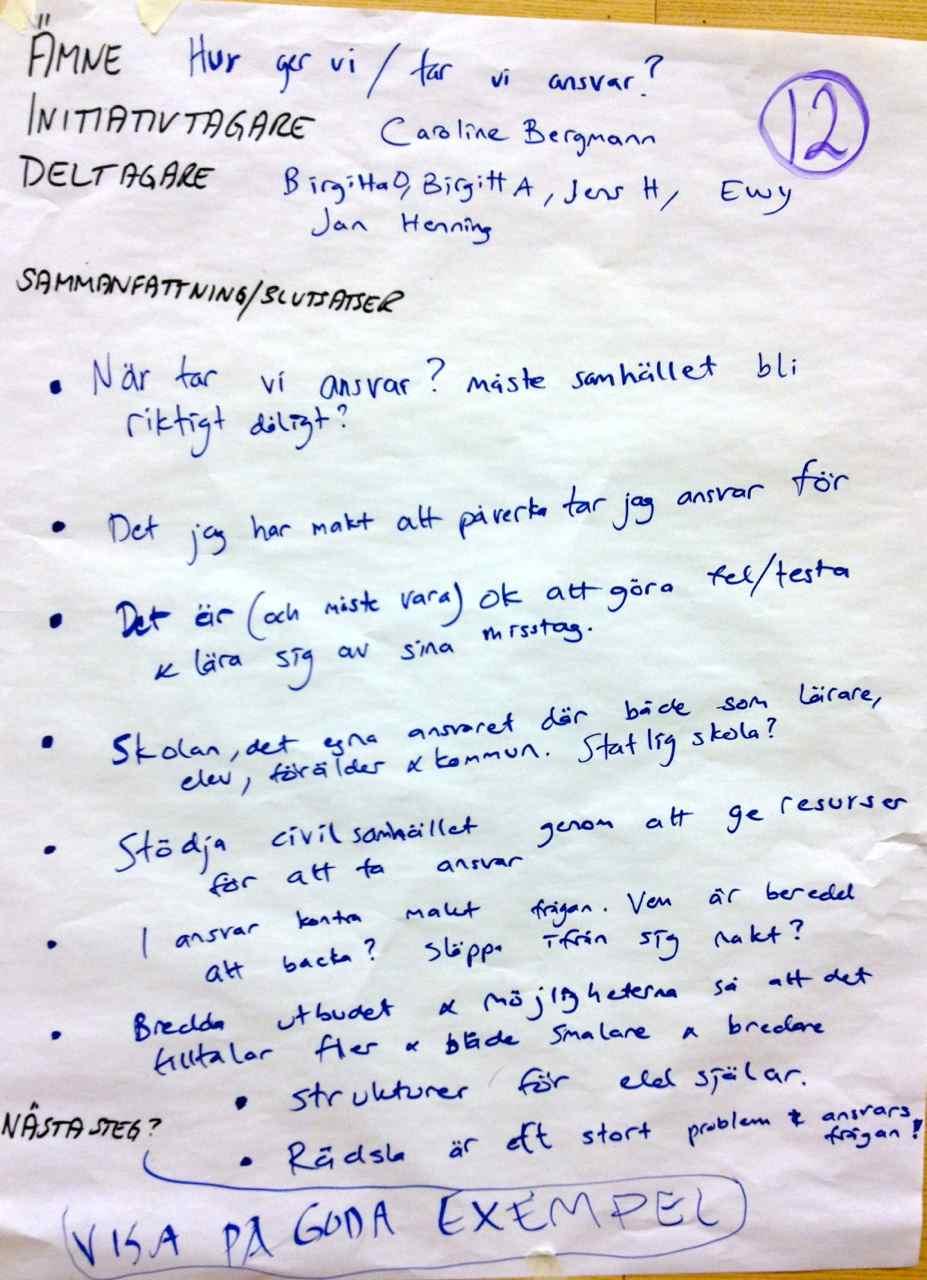 ÄMNE Hur ger vi / tar vi ansvar?
12
INITIATIVTAGARE Caroline Bergmann
DELTAGARE BirgittaO, Birgitt A, Jens H, Ewy
Jan Henning
SAMMANFATTNING/SLUTSATSER
• När tar vi ansvar? måste samhället bli
riktigt dåligt?
• Det jag har makt att påverka tar jag ansvar för
• Det är (och måste vara) ok att göra fel/testa
& lära sig av sina misstag.
• Skolan, det egna ansvaret där både som lärare,
elev, förälder & kommun. Statlig skola?
• Stödja civilsamhället genom att ge resurser
för att ta ansvar
• I ansvar kontra makt frågan. Vem är beredd
att backa? Släppa ifrån sig makt?
• Bredda utbudet & möjligheterna så att det
tilltalar fler & både smalare & bredare
• strukturer för eldsjälar.
NÄSTA STEG?
• Rädsla är ett stort problem & ansvars
frågan!
VISA PÅ GODA EXEMPEL